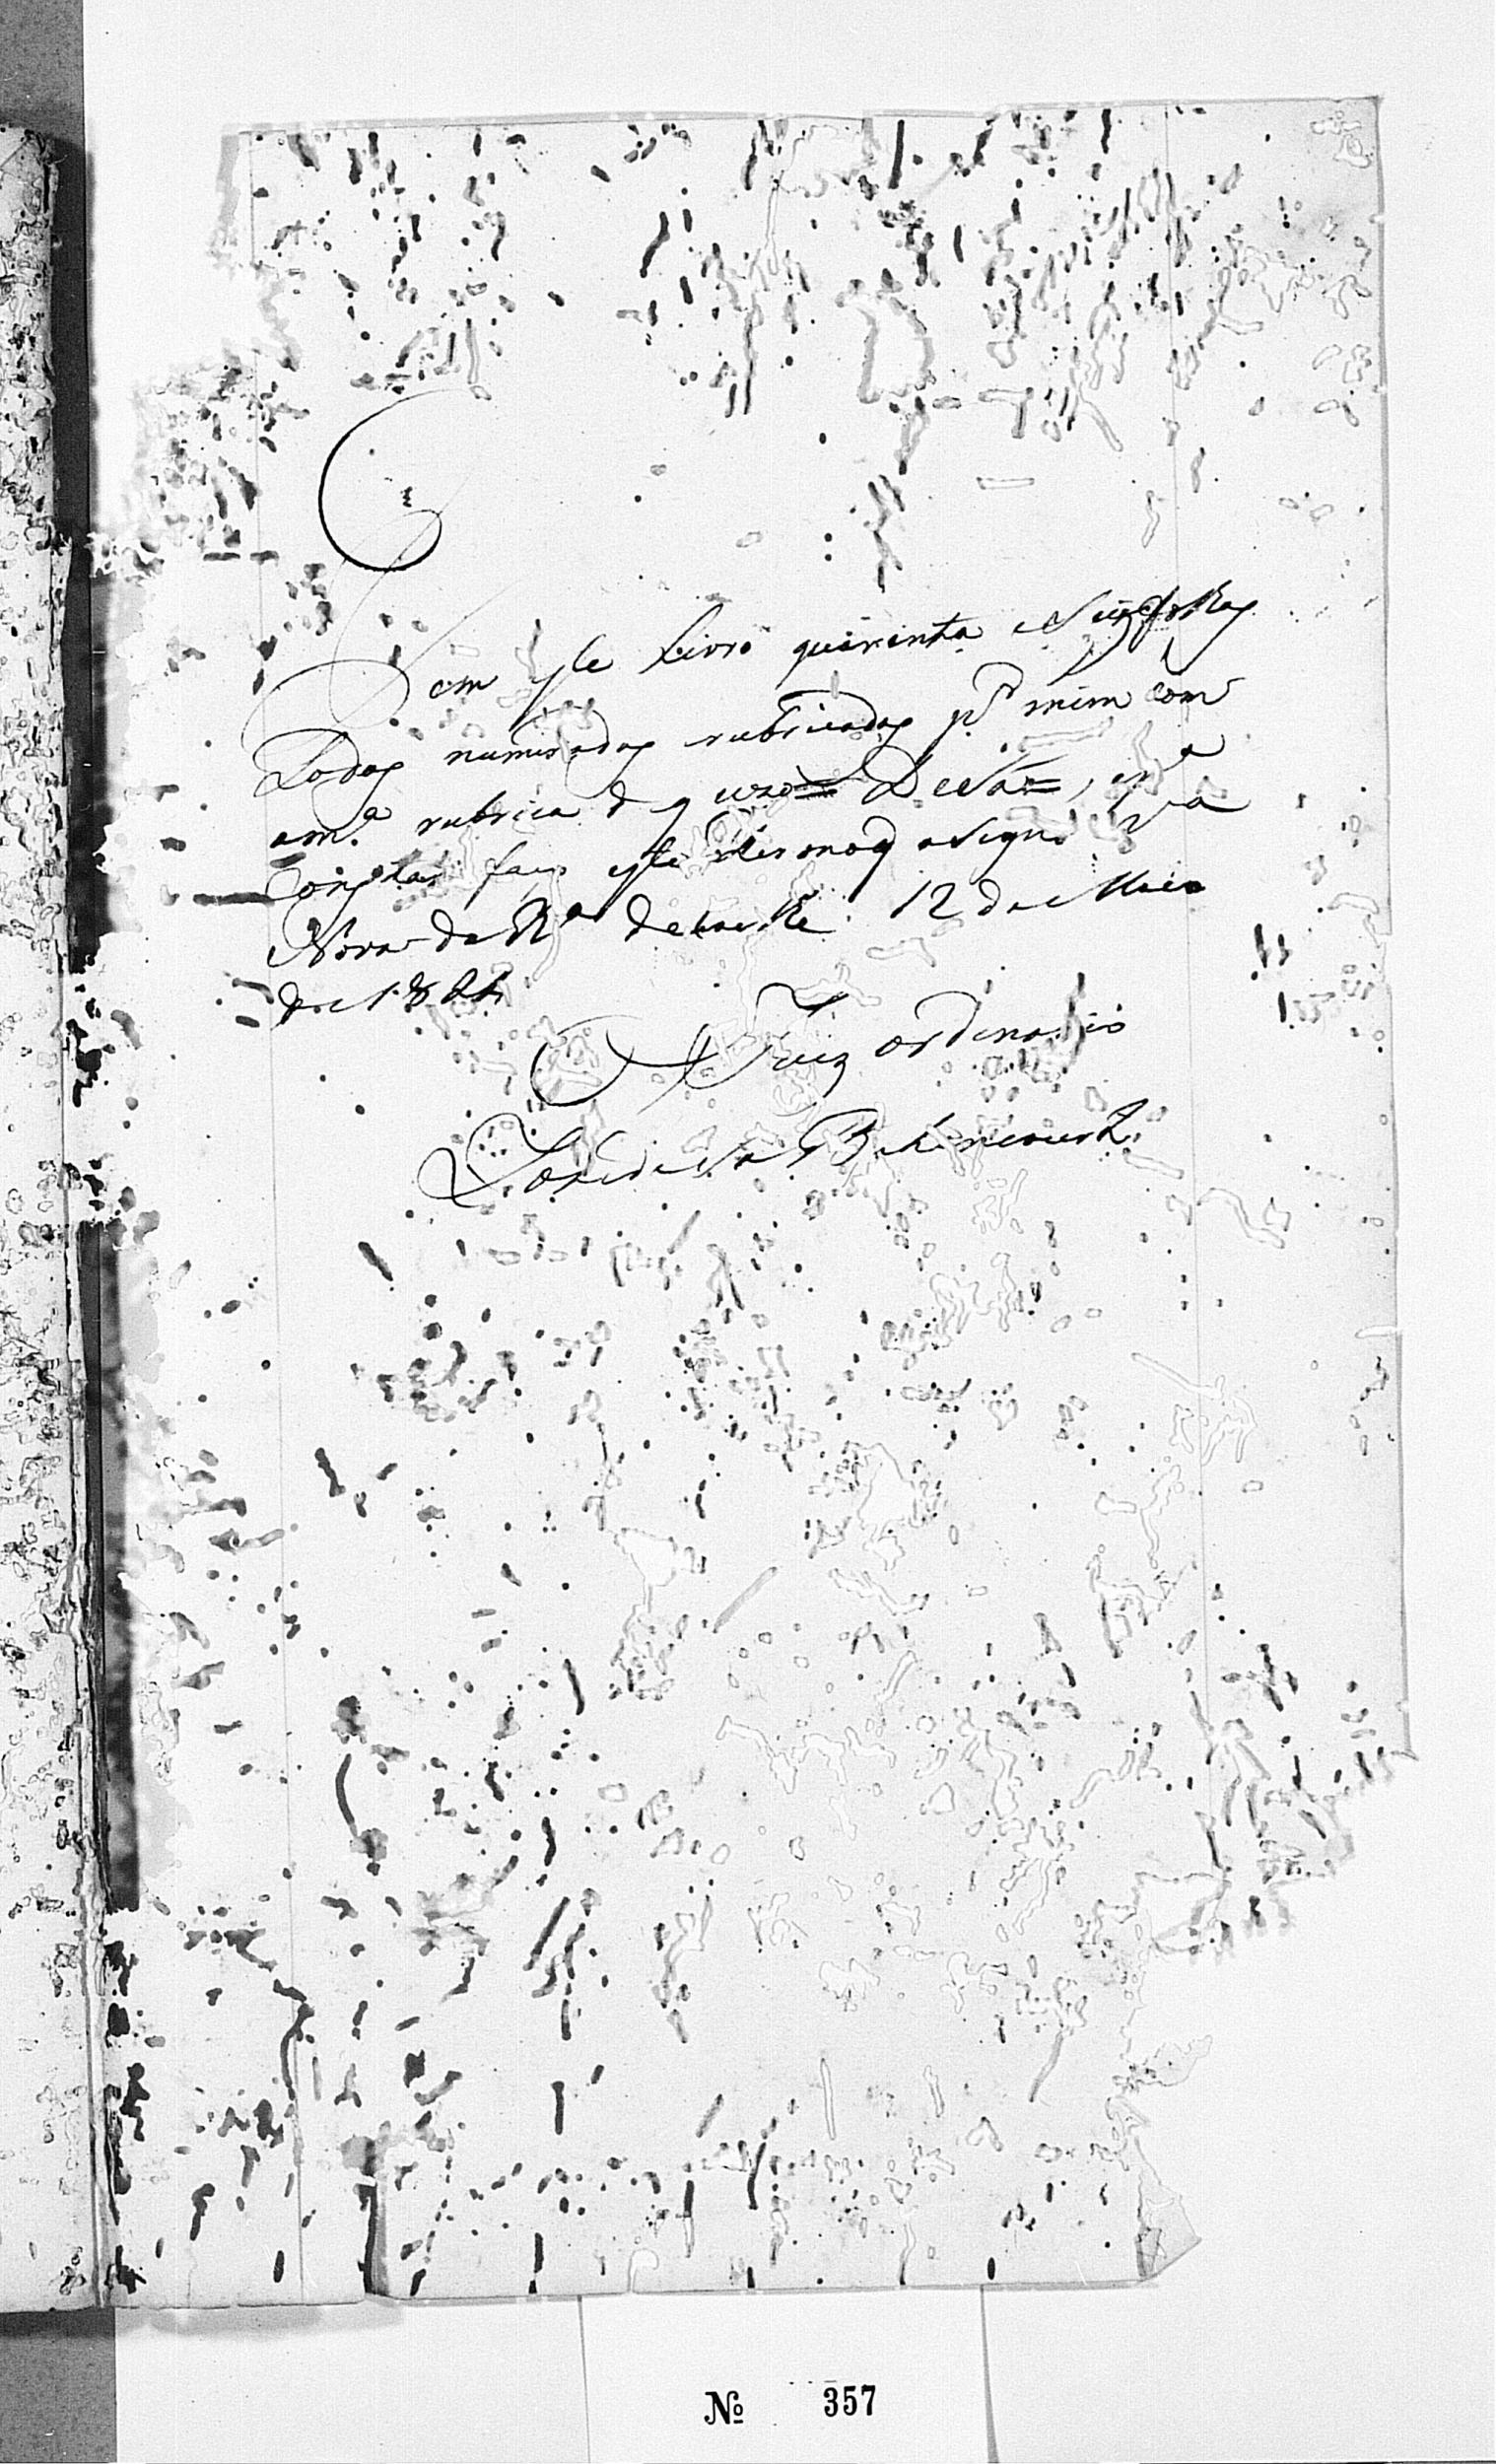 Tem este Livro quarenta e seis folhas
Todas numeradas rubricadas p.r mim com
a m.a rubrica de q uzo = DeSá = , e p.a
Constar faço este termo q asigno
Nova da R.a 12 de Maio
de 18
O Juiz ordinario
Joze de Sá Bitancourt
Nº 357